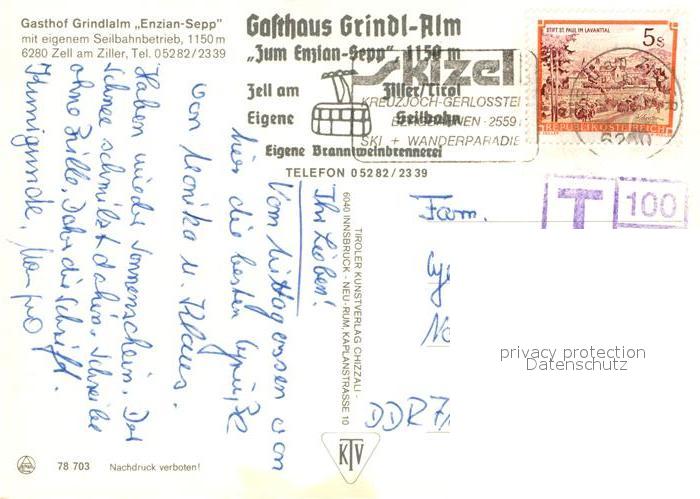 Gasthof Grindlalm „Enzian-Sepp"
mit eigenem Seilbahnbetrieb, 1150 m
6280 Zell am Ziller, Tel. 05282/2339
Gasthaus Grindl-Alm
„Zum Enzian-Sepp" 1150 m
Zell am Ziller/Tirol
Eigene Seilbahn
Eigene Branntweinbrennerei
TELEFON 05282/2339
Skizel
KREUZJOCH-GERLOSSTEI
2559
SKI + WANDERPARADIE
STIFT ST. PAUL IM LAVANTTAL
5 S
REPUBLIK ÖSTERREICH
6280
T 100
Ihr Lieben!
Vom Mittagessen von
hier die besten Grüße
von Monika u. Klaus.
Haben wieder Sonnenschein. Der
Schnee schmilzt dahin. Schreibe
ohne Brille, daher die Schrift.
Kunigunde,
Fam.
DDR 7
TIROLER KUNSTVERLAG CHIZZALI -
6040 INNSBRUCK - NEU-RUM, KAPLANSTRASSE 10
KTV
78 703 Nachdruck verboten!
privacy protection
Datenschutz